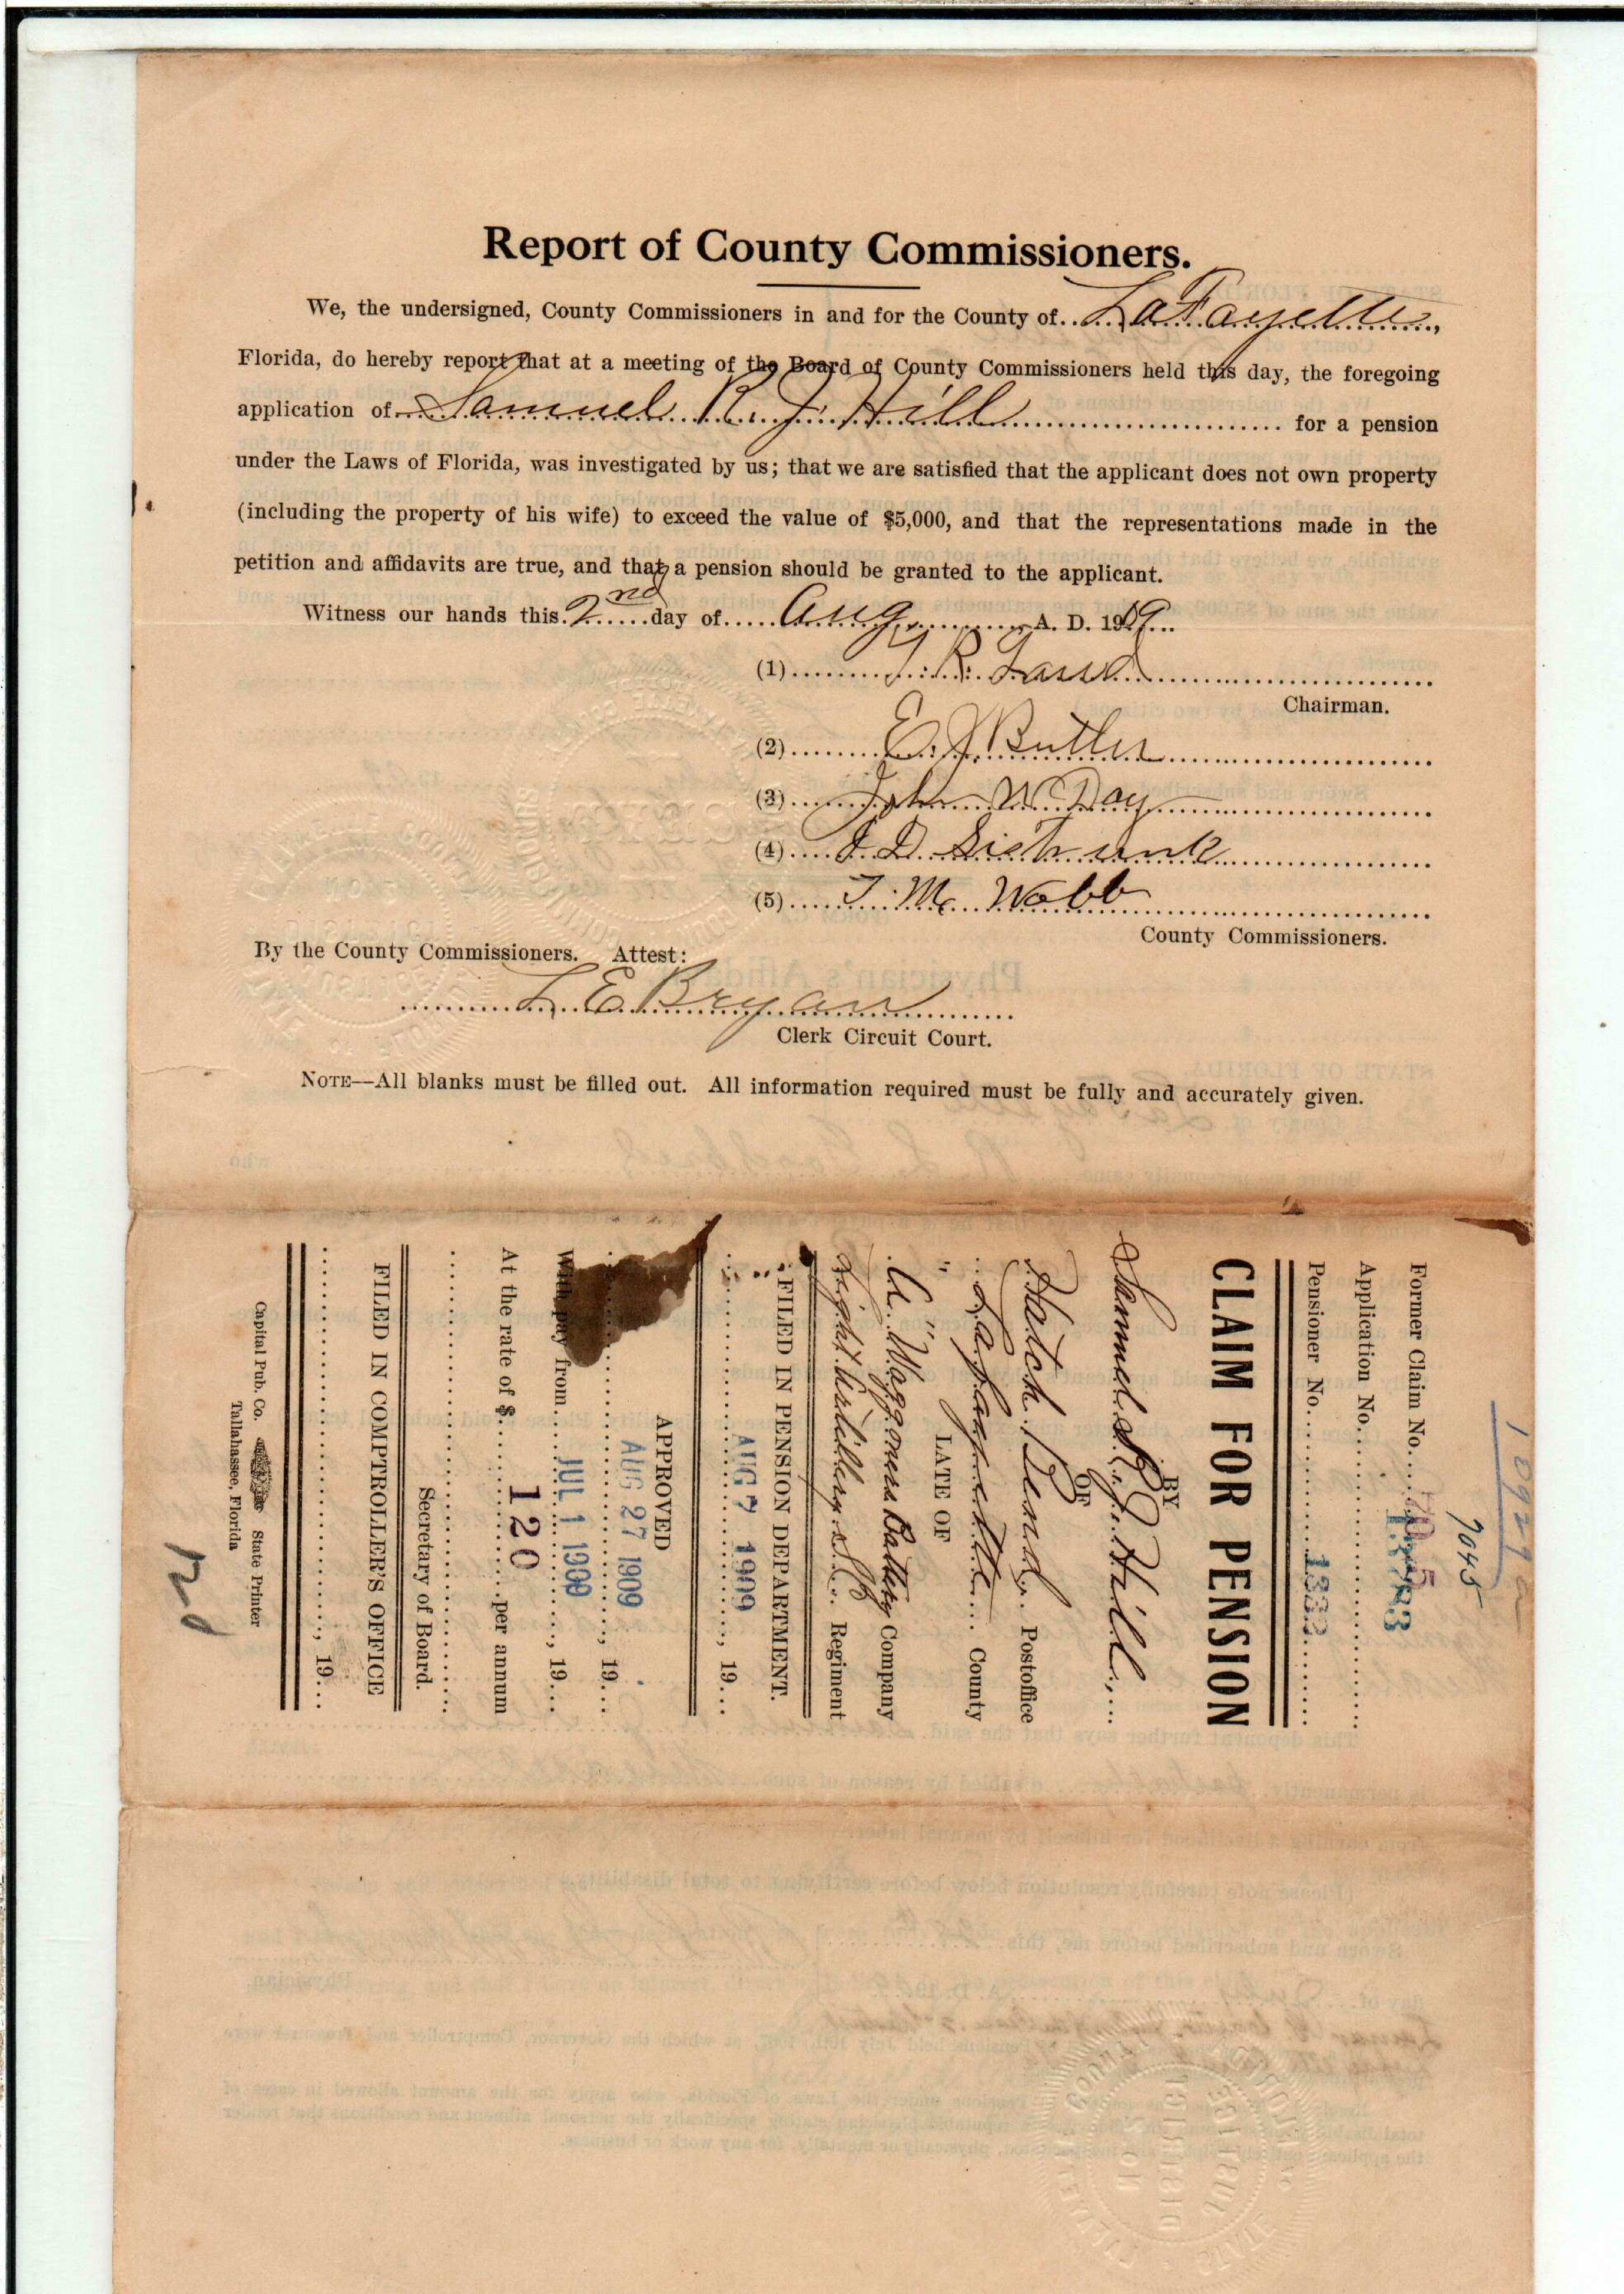 Report of County Commissioners.
We, the undersigned, County Commissioners in and for the County of LaFayette,
Florida, do hereby report that at a meeting of the Board of County Commissioners held this day, the foregoing
application of Samuel R. J. Hill for a pension
under the Laws of Florida, was investigated by us; that we are satisfied that the applicant does not own property
(including the property of his wife) to exceed the value of $5,000, and that the representations made in the
petition and affidavits are true, and that a pension should be granted to the applicant.
Witness our hands this 2nd day of Aug A. D. 1909
(1) T. R.
Chairman.
(2) E. J. Butler
(3) John W Day
(4) J D Sistrunk
(5) T. M. Webb
County Commissioners.
By the County Commissioners. Attest:
L E Bryan
Clerk Circuit Court.
NOTE—All blanks must be filled out. All information required must be fully and accurately given.
7045
Former Claim No.
Application No.
Pensioner No. 1833
CLAIM FOR PENSION
BY
Samuel R. J. Hill,
OF
Hatch Bend, Postoffice
" Lafayette County
LATE OF
"A" Waggoners Battery Company
Light Artillery S.C. Regiment
FILED IN PENSION DEPARTMENT.
AUG 7 1909, 19
APPROVED
AUG 27 1909, 19
With pay from JUL 1 1909, 19
At the rate of $ 120 per annum
Secretary of Board.
FILED IN COMPTROLLER'S OFFICE
, 19
Capital Pub. Co. State Printer
Tallahassee, Florida